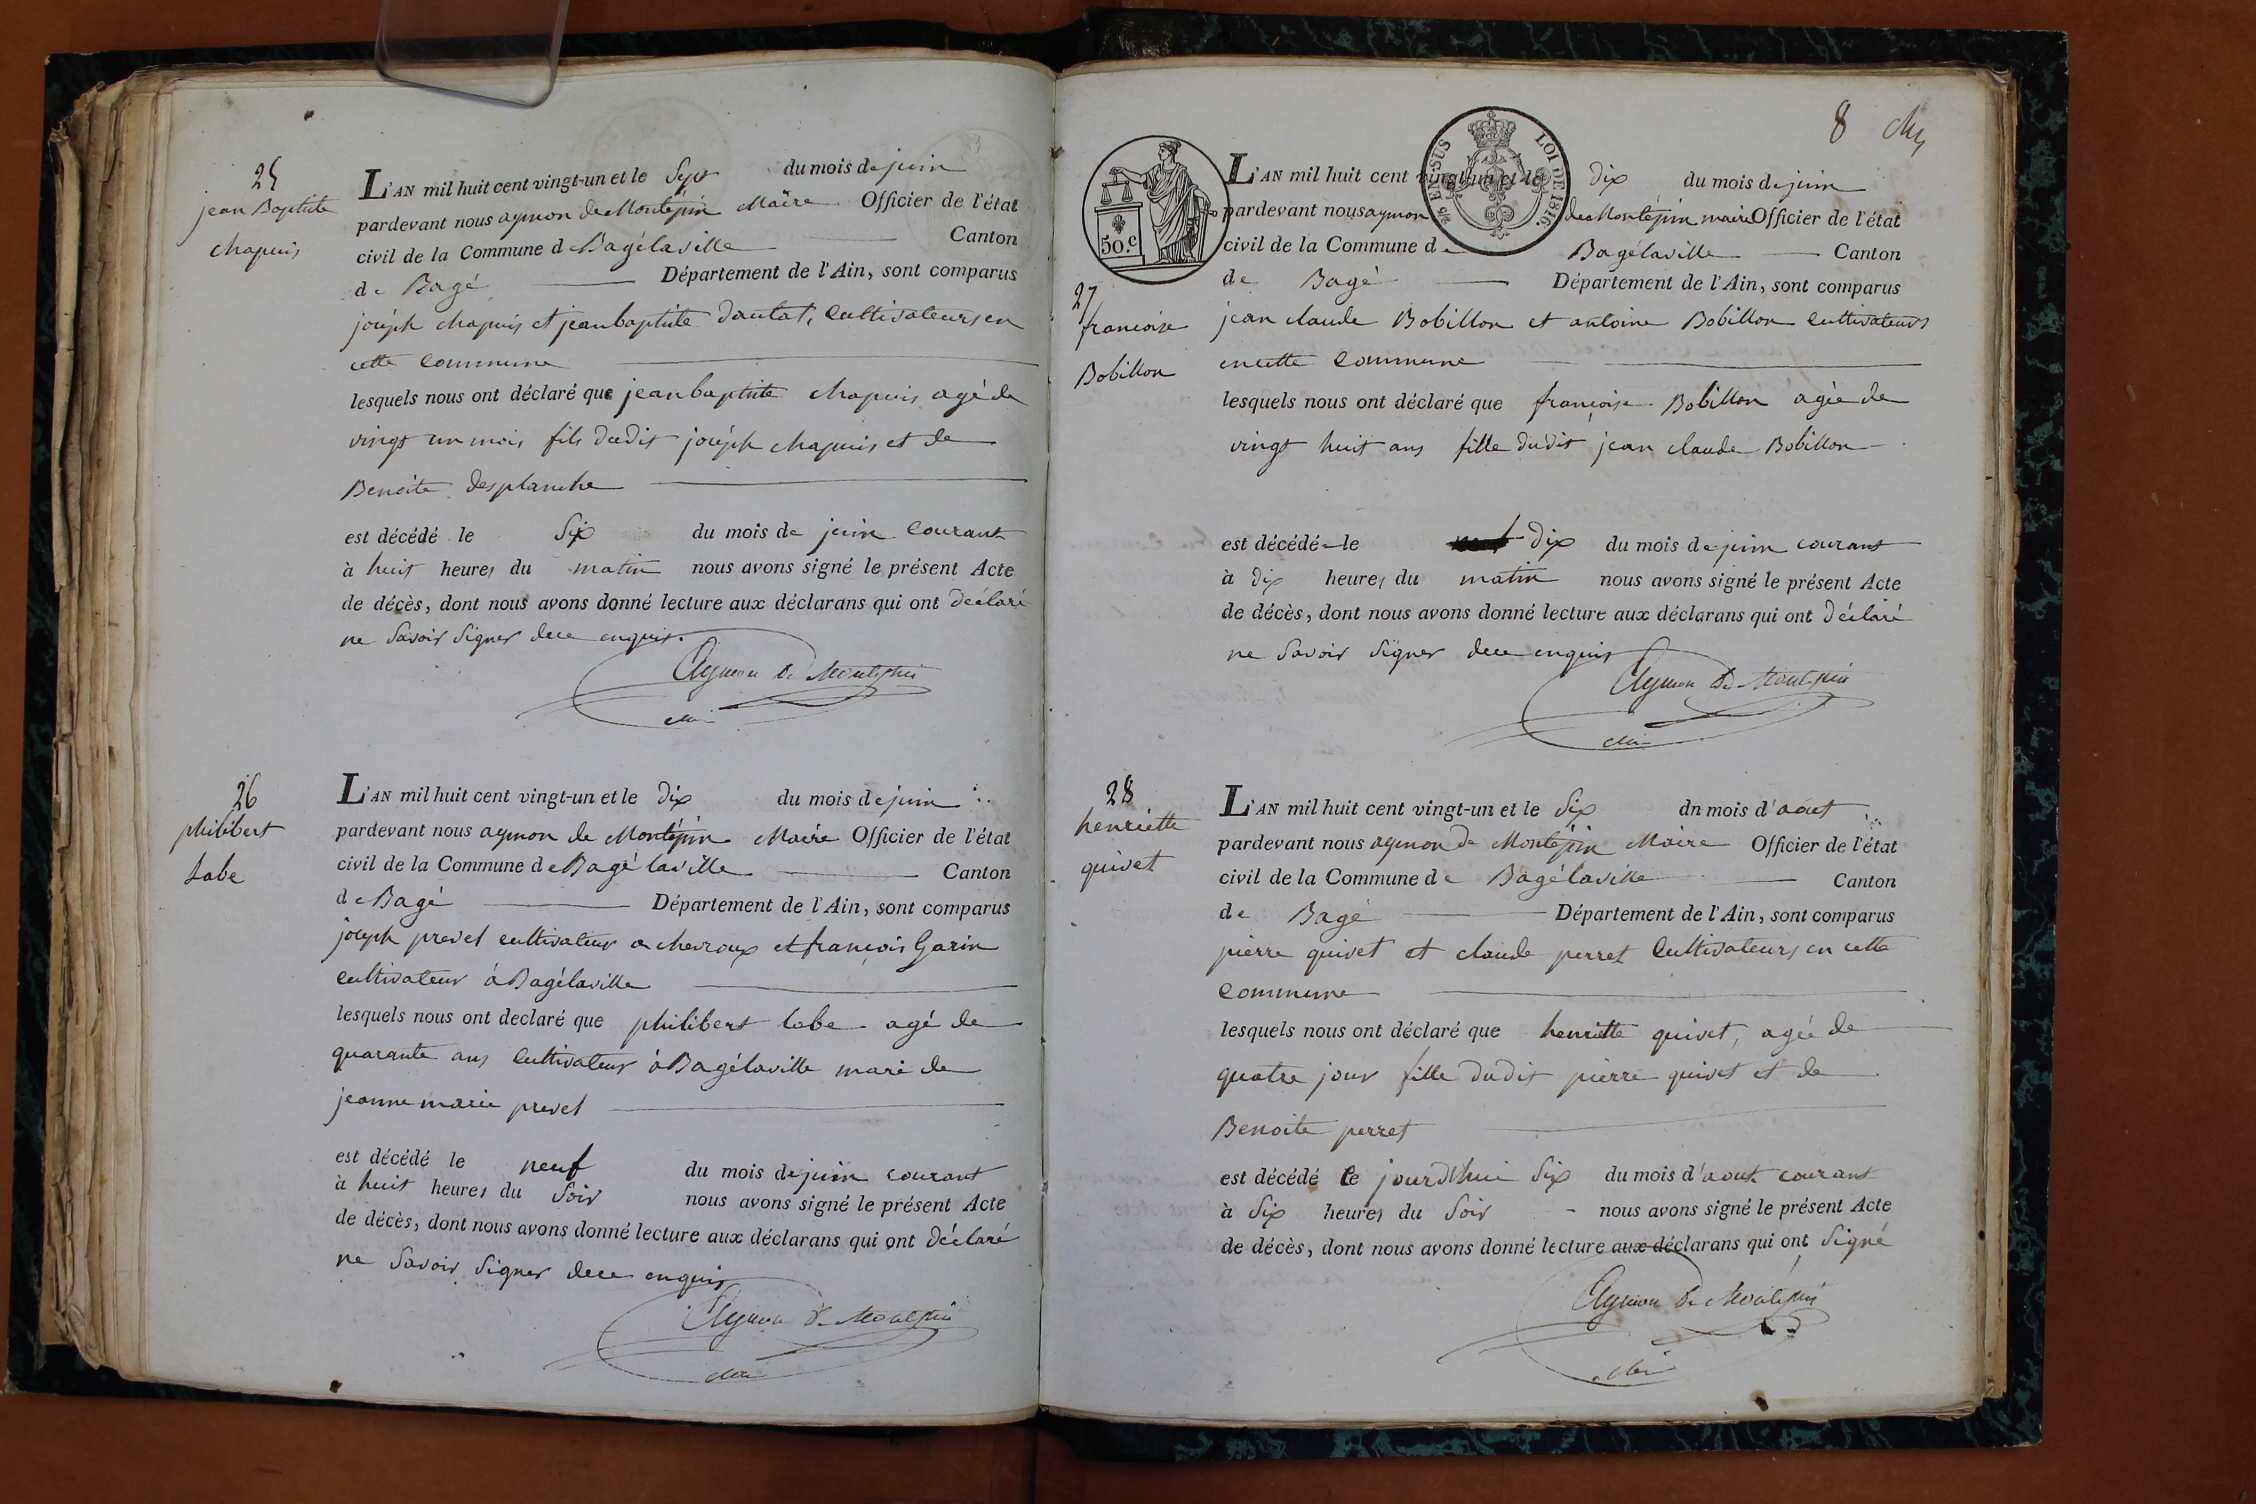 25
jean Baptiste
chapuis
L'AN mil huit cent vingt-un et le Sept du mois de juin
pardevant nous aymon de Montépin Maire Officier de l'état
civil de la Commune de Bagélaville Canton
de Bagé Département de l'Ain, sont comparus
joséph chapuis et jean baptiste dautat, cultivateurs en
cette commune
lesquels nous ont déclaré que jean baptiste chapuis agé de
vingt un mois fils dudit joséph chapuis et de
Benoite desplanche
est décédé le Six du mois de juin courant
à huit heures du matin nous avons signé le présent Acte
de décès, dont nous avons donné lecture aux déclarans qui ont déclaré
ne Savoir Signer de ce enquis.
Aymon De Montépin
26
philibert
Labe
L'AN mil huit cent vingt-un et le dix du mois de juin
pardevant nous aymon de Montépin Maire Officier de l'état
civil de la Commune de Bagé laville Canton
de Bagé Département de l'Ain, sont comparus
joseph prevel cultivateur a chevroux et françois Garin
cultivateur à Bagélaville
lesquels nous ont declaré que philibert labe agé de
quarante ans cultivateur à Bagélaville mari de
jeanne marie prevel
est décédé le neuf du mois de juin courant
à huit heures du Soir nous avons signé le présent Acte
de décès, dont nous avons donné lecture aux déclarans qui ont déclaré
ne Savoir Signer de ce enquis
Aymon De Montépin
8
50.c
EN SUS
LOI DE 1816.
27
francoise
Bobillon
L'AN mil huit cent vingt-un et le dix du mois de juin
pardevant nous aymon de Montépin maire Officier de l'état
civil de la Commune de Bagélaville Canton
de Bagé Département de l'Ain, sont comparus
jean claude Bobillon et antoine Bobillon cultivateurs
en cette commune
lesquels nous ont déclaré que françoise Bobillon agée de
vingt huit ans fille dudit jean claude Bobillon
est décédée le dix du mois de juin courant
à dix heures du matin nous avons signé le présent Acte
de décès, dont nous avons donné lecture aux déclarans qui ont déclaré
ne Savoir Signer de ce enquis
Aymon De Montépin
28
henriette
quivet
L'AN mil huit cent vingt-un et le Six dn mois d'aout
pardevant nous aymon de Montépin Maire Officier de l'état
civil de la Commune de Bagélaville Canton
de Bagé Département de l'Ain, sont comparus
pierre quivet et claude perret cultivateurs en cette
commune
lesquels nous ont déclaré que henriette quivet, agée de
quatre jour fille dudit pierre quivet et de
Benoite perret
est décédé le jourd'hui Six du mois d'aout courant
à Six heures du Soir nous avons signé le présent Acte
de décès, dont nous avons donné lecture aux déclarans qui ont Signé
Aymon De Montépin